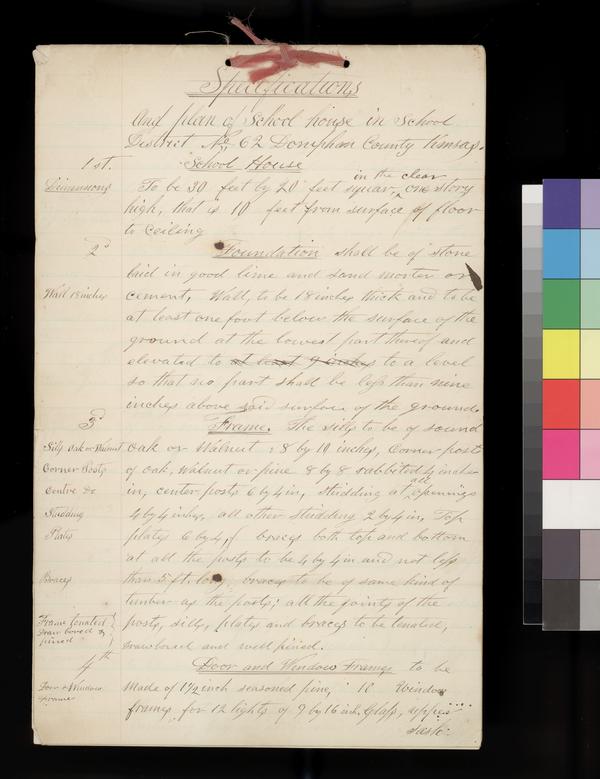 Specifications
And plan of School house in School
District No 62 Doniphan County Kansas.
1st. School House
in the clear
Dimensions To be 30 feet by 20 feet squar, one story
high, that is 10 feet from surface of floor
to ceiling
2d Foundation shall be of stone
laid in good lime and sand morter or
Wall 18 inches cement, Wall, to be 18 inches thick and to be
at least one foot below the surface of the
ground at the lowest part thereof and
elevated to at least 9 inches to a level
so that no part shall be less than nine
inches above said surface of the ground.
3d Frame. The sills to be of sound
Sills Oak or Walnut Oak or Walnut 8 by 10 inches, Corner posts
Corner Posts of oak, walnut or pine 8 by 8 rabbited 4 inches
all
Centre &c in, center posts 6 by 4 in, studding at openings
Studding 4 by 4 inches, all other studding 2 by 4 in, Top
Plates plates 6 by 4, braces both top and bottom
at all the posts to be 4 by 4 in and not less
Braces than 5 ft. long, braces to be of same kind of
timber as the posts; all the joints of the
Frame tenated posts, sills, plates and braces to be tenated,
draw bored & pined drawbored and well pined.
4th Door and Window Frames to be
Door & Window Made of 1 1/2 inch seasoned pine, Window
frames frames for 12 lights of 9 by 16 inch Glass, upper
sash